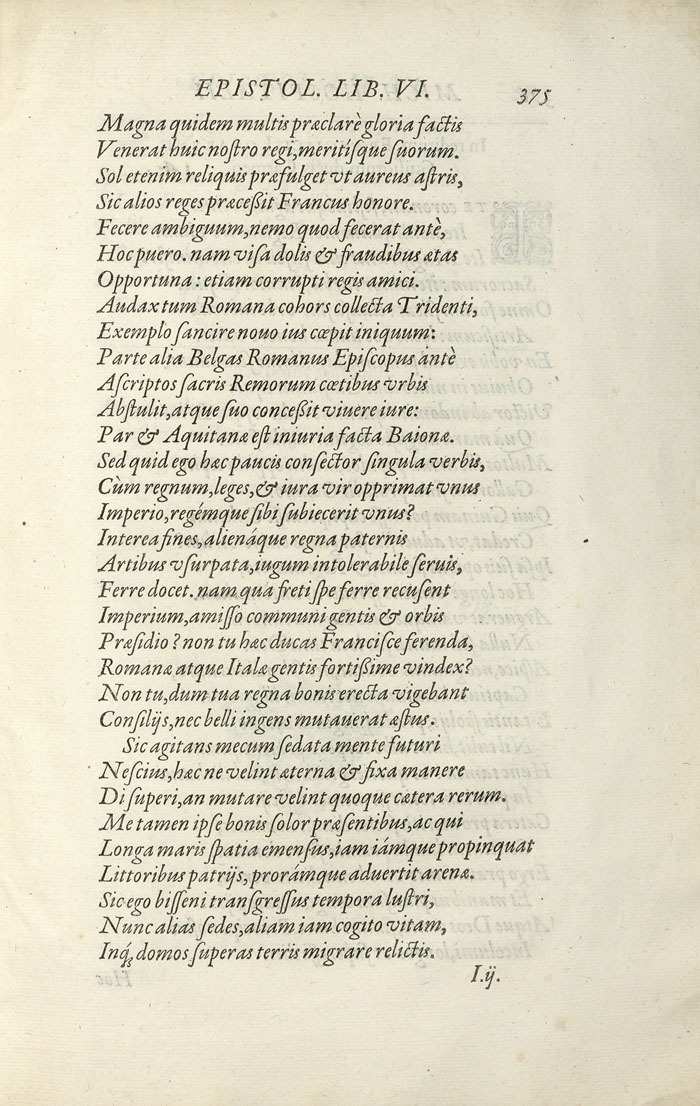 EPISTOL. LIB. VI. 375
Magna quidem multis præclarè gloria factis
Venerat huic noſtro regi, meritíſque ſuorum.
Sol etenim reliquis præfulget vt aureus aſtris,
Sic alios reges præceßit Francus honore.
Fecere ambiguum, nemo quod fecerat antè,
Hoc puero. nam viſa dolis & fraudibus ætas
Opportuna : etiam corrupti regis amici.
Audax tum Romana cohors collecta Tridenti,
Exemplo ſancire nouo ius cœpit iniquum:
Parte alia Belgas Romanus Epiſcopus antè
Aſcriptos ſacris Remorum cœtibus vrbis
Abſtulit, atque ſuo conceßit viuere iure:
Par & Aquitanæ eſt iniuria facta Baionæ.
Sed quid ego hæc paucis conſector ſingula verbis,
Cùm regnum, leges, & iura vir opprimat vnus
Imperio, regémque ſibi ſubiecerit vnus?
Interea fines, alienáque regna paternis
Artibus vſurpata, iugum intolerabile ſeruis,
Ferre docet. nam qua freti ſpe ferre recuſent
Imperium, amiſſo communi gentis & orbis
Præſidio ? non tu hæc ducas Franciſce ferenda,
Romanæ atque Italæ gentis fortißime vindex?
Non tu, dum tua regna bonis erecta vigebant
Conſilijs, nec belli ingens mutauerat æſtus.
Sic agitans mecum ſedata mente futuri
Neſcius, hæc ne velint æterna & fixa manere
Di ſuperi, an mutare velint quoque cætera rerum.
Me tamen ipſe bonis ſolor præſentibus, ac qui
Longa maris ſpatia emenſus, iam iámque propinquat
Littoribus patrijs, prorámque aduertit arenæ.
Sic ego biſſeni tranſgreſſus tempora luſtri,
Nunc alias ſedes, aliam iam cogito vitam,
Inq́; domos ſuperas terris migrare relictis.
I.ij.